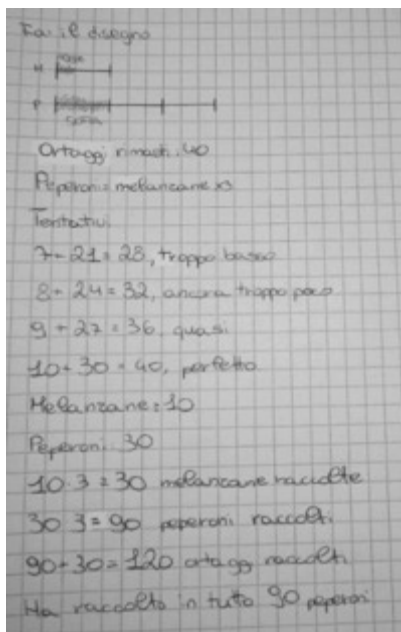 Fai il disegno
M
P
Ortaggi rimasti: 40
Peperoni = melancane x3
Tentativi
7 + 21 = 28, troppo basso
8 + 24 = 32, ancora troppo poco
9 + 27 = 36, quasi
10 + 30 = 40, perfetto
Melanzane: 10
Peperoni: 30
10 · 3 = 30 melancane raccolte
30 · 3 = 90 peperoni raccolti
90 + 30 = 120 ortaggi raccolti
Ha raccolto in tutto 90 peperoni